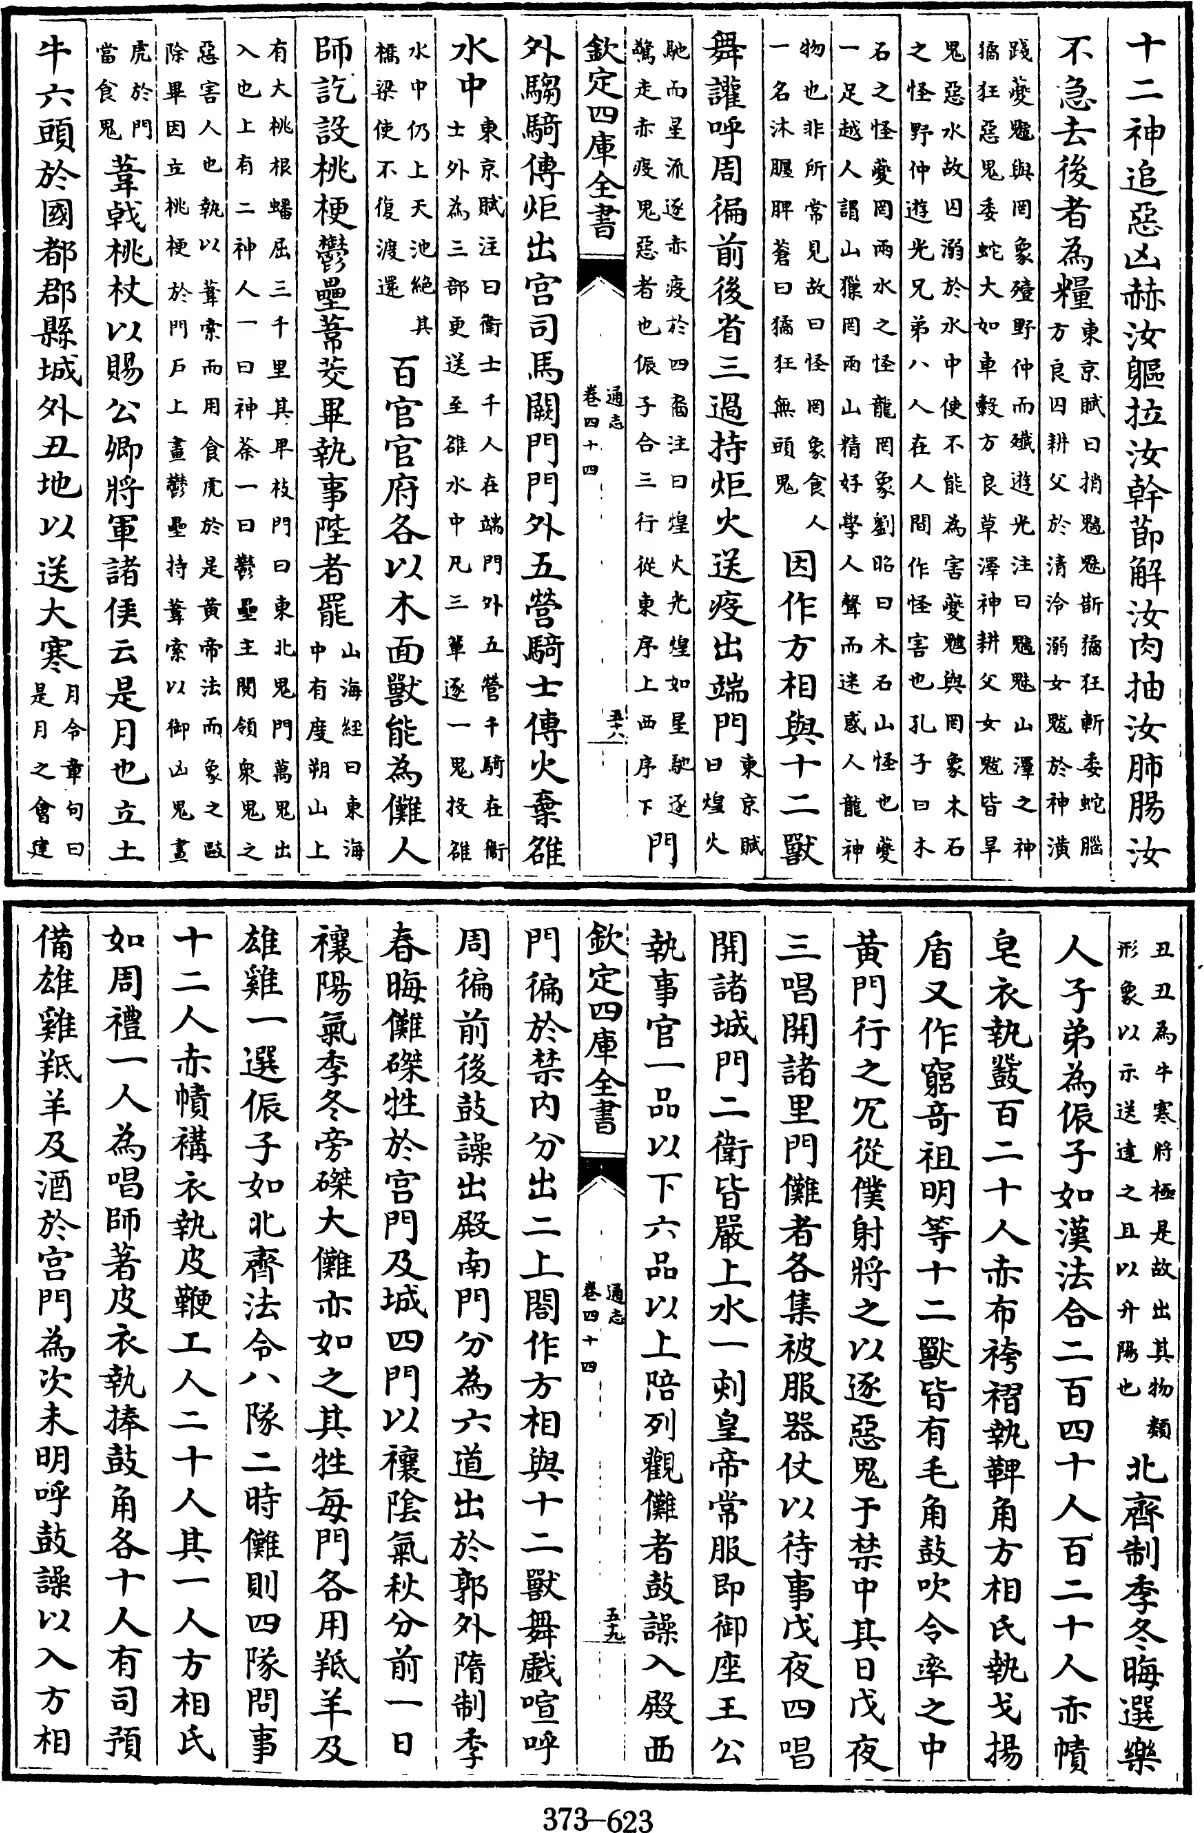 十二神追惡凶赫汝軀拉汝幹節解汝肉抽汝肺腸汝
不急去後者為糧東京賦曰捎魑魅斮獝狂斬委蛇腦
方良囚耕父於清泠溺女魃於神潢
踐夔魖與罔象殪野仲而殲遊光注曰魑魅山澤之神
獝狂惡鬼委蛇大如車轂方良草澤神耕父女魃皆旱
鬼惡水故囚溺於水中使不能為害夔魖與罔象木石
之怪野仲遊光兄弟八人在人間作怪害也孔子曰木
石之怪夔罔兩水之怪龍罔象劉昭曰木石山怪也夔
一足越人謂山罔兩山精好學人聲而迷惑人龍神
物也非所常見故曰怪罔象食人
一名沐腫脾蒼曰獝狂無頭鬼因作方相與十二獸
舞讙呼周徧前後省三過持炬火送疫出端門東京賦
曰煌火
馳而星流逐赤疫於四裔注曰煌火光煌如星馳逐
驚走赤疫鬼惡者也侲子合三行從東序上西序下門
欽定四庫全書 通志 卷四十四 五十八
外騶騎傳炬出宫司馬闕門門外五營騎士傳火棄雒
水中東京賦注曰衛士千人在端門外五營千騎在衛
士外為三部更送至雒水中凡三軰逐一鬼投雒
水中仍上天池絶其
橋梁使不復渡還百官官府各以木面獸能為儺人
師訖設桃梗鬱壘葦茭畢執事陛者罷山海經曰東海
中有度朔山上
有大桃根蟠屈三千里其卑枝門曰東北鬼門萬鬼出
入也上有二神人一曰神荼一曰鬱壘主閱領衆鬼之
惡害人也執以葦索而用食虎於是黄帝法而象之敺
除畢因立桃梗於門戸上畫鬱壘持葦索以御凶鬼畫
虎於門
當食鬼葦戟桃杖以賜公卿將軍諸侯云是月也立土
牛六頭於國都郡縣城外丑地以送大寒月令章句曰
是月之會建
丑丑為牛寒將極是故出其物類
形象以示送達之且以升陽也北齊制季冬晦選樂
人子弟為侲子如漢法合二百四十人百二十人赤幘
皂衣執鼗百二十人赤布袴褶執鞞角方相氏執戈揚
盾又作窮奇祖明等十二獸皆有毛角鼓吹令率之中
黄門行之冗從僕射將之以逐惡鬼于禁中其日戊夜
三唱開諸里門儺者各集被服器仗以待事戊夜四唱
開諸城門二衛皆嚴上水一刻皇帝常服即御座王公
執事官一品以下六品以上陪列觀儺者鼓譟入殿西
欽定四庫全書 通志 卷四十四 五十九
門徧於禁内分出二上閤作方相與十二獸舞戲喧呼
周徧前後鼓譟出殿南門分為六道出於郭外隋制季
春晦儺磔牲於宫門及城四門以禳陰氣秋分前一日
禳陽氣季冬旁磔大儺亦如之其牲每門各用羝羊及
雄雞一選侲子如北齊法令八隊二時儺則四隊問事
十二人赤幘褠衣執皮鞭工人二十人其一人方相氏
如周禮一人為唱師著皮衣執捧鼓角各十人有司預
備雄雞羝羊及酒於宫門為次未明呼鼓譟以入方相
373–623